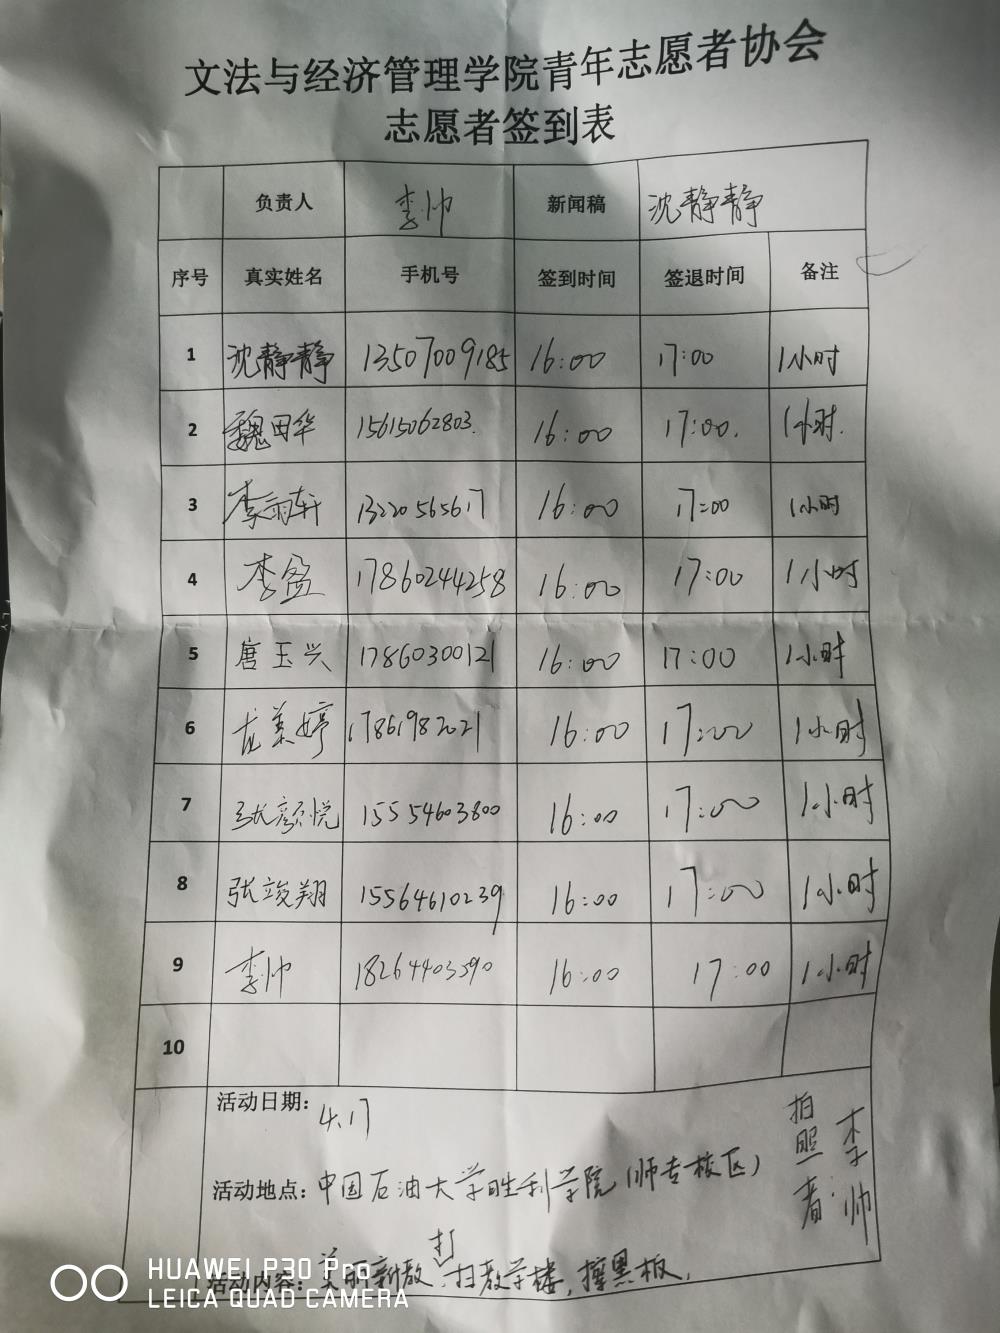 文法与经济管理学院青年志愿者协会
志愿者签到表
负责人 李帅 新闻稿 沈静静
序号 真实姓名 手机号 签到时间 签退时间 备注
1 沈静静 13507009185 16:00 17:00 1小时
2 魏田华 15615062803. 16:00 17:00. 1小时.
3 李雨轩 13220565617 16:00 17:00 1小时
4 李盈 17860244258 16:00 17:00 1小时
5 唐玉兴 17860300121 16:00 17:00 1小时
6 尤美婷 17861982021 16:00 17:00 1小时
7 张颜悦 15554603800 16:00 17:00 1小时
8 张竣翔 15564610239 16:00 17:00 1小时
9 李帅 18264403590 16:00 17:00 1小时
10
活动日期: 4.17
活动地点: 中国石油大学胜利学院(师专校区)
拍照者: 李帅
活动内容: 打扫教学楼, 擦黑板.
HUAWEI P30 Pro
LEICA QUAD CAMERA